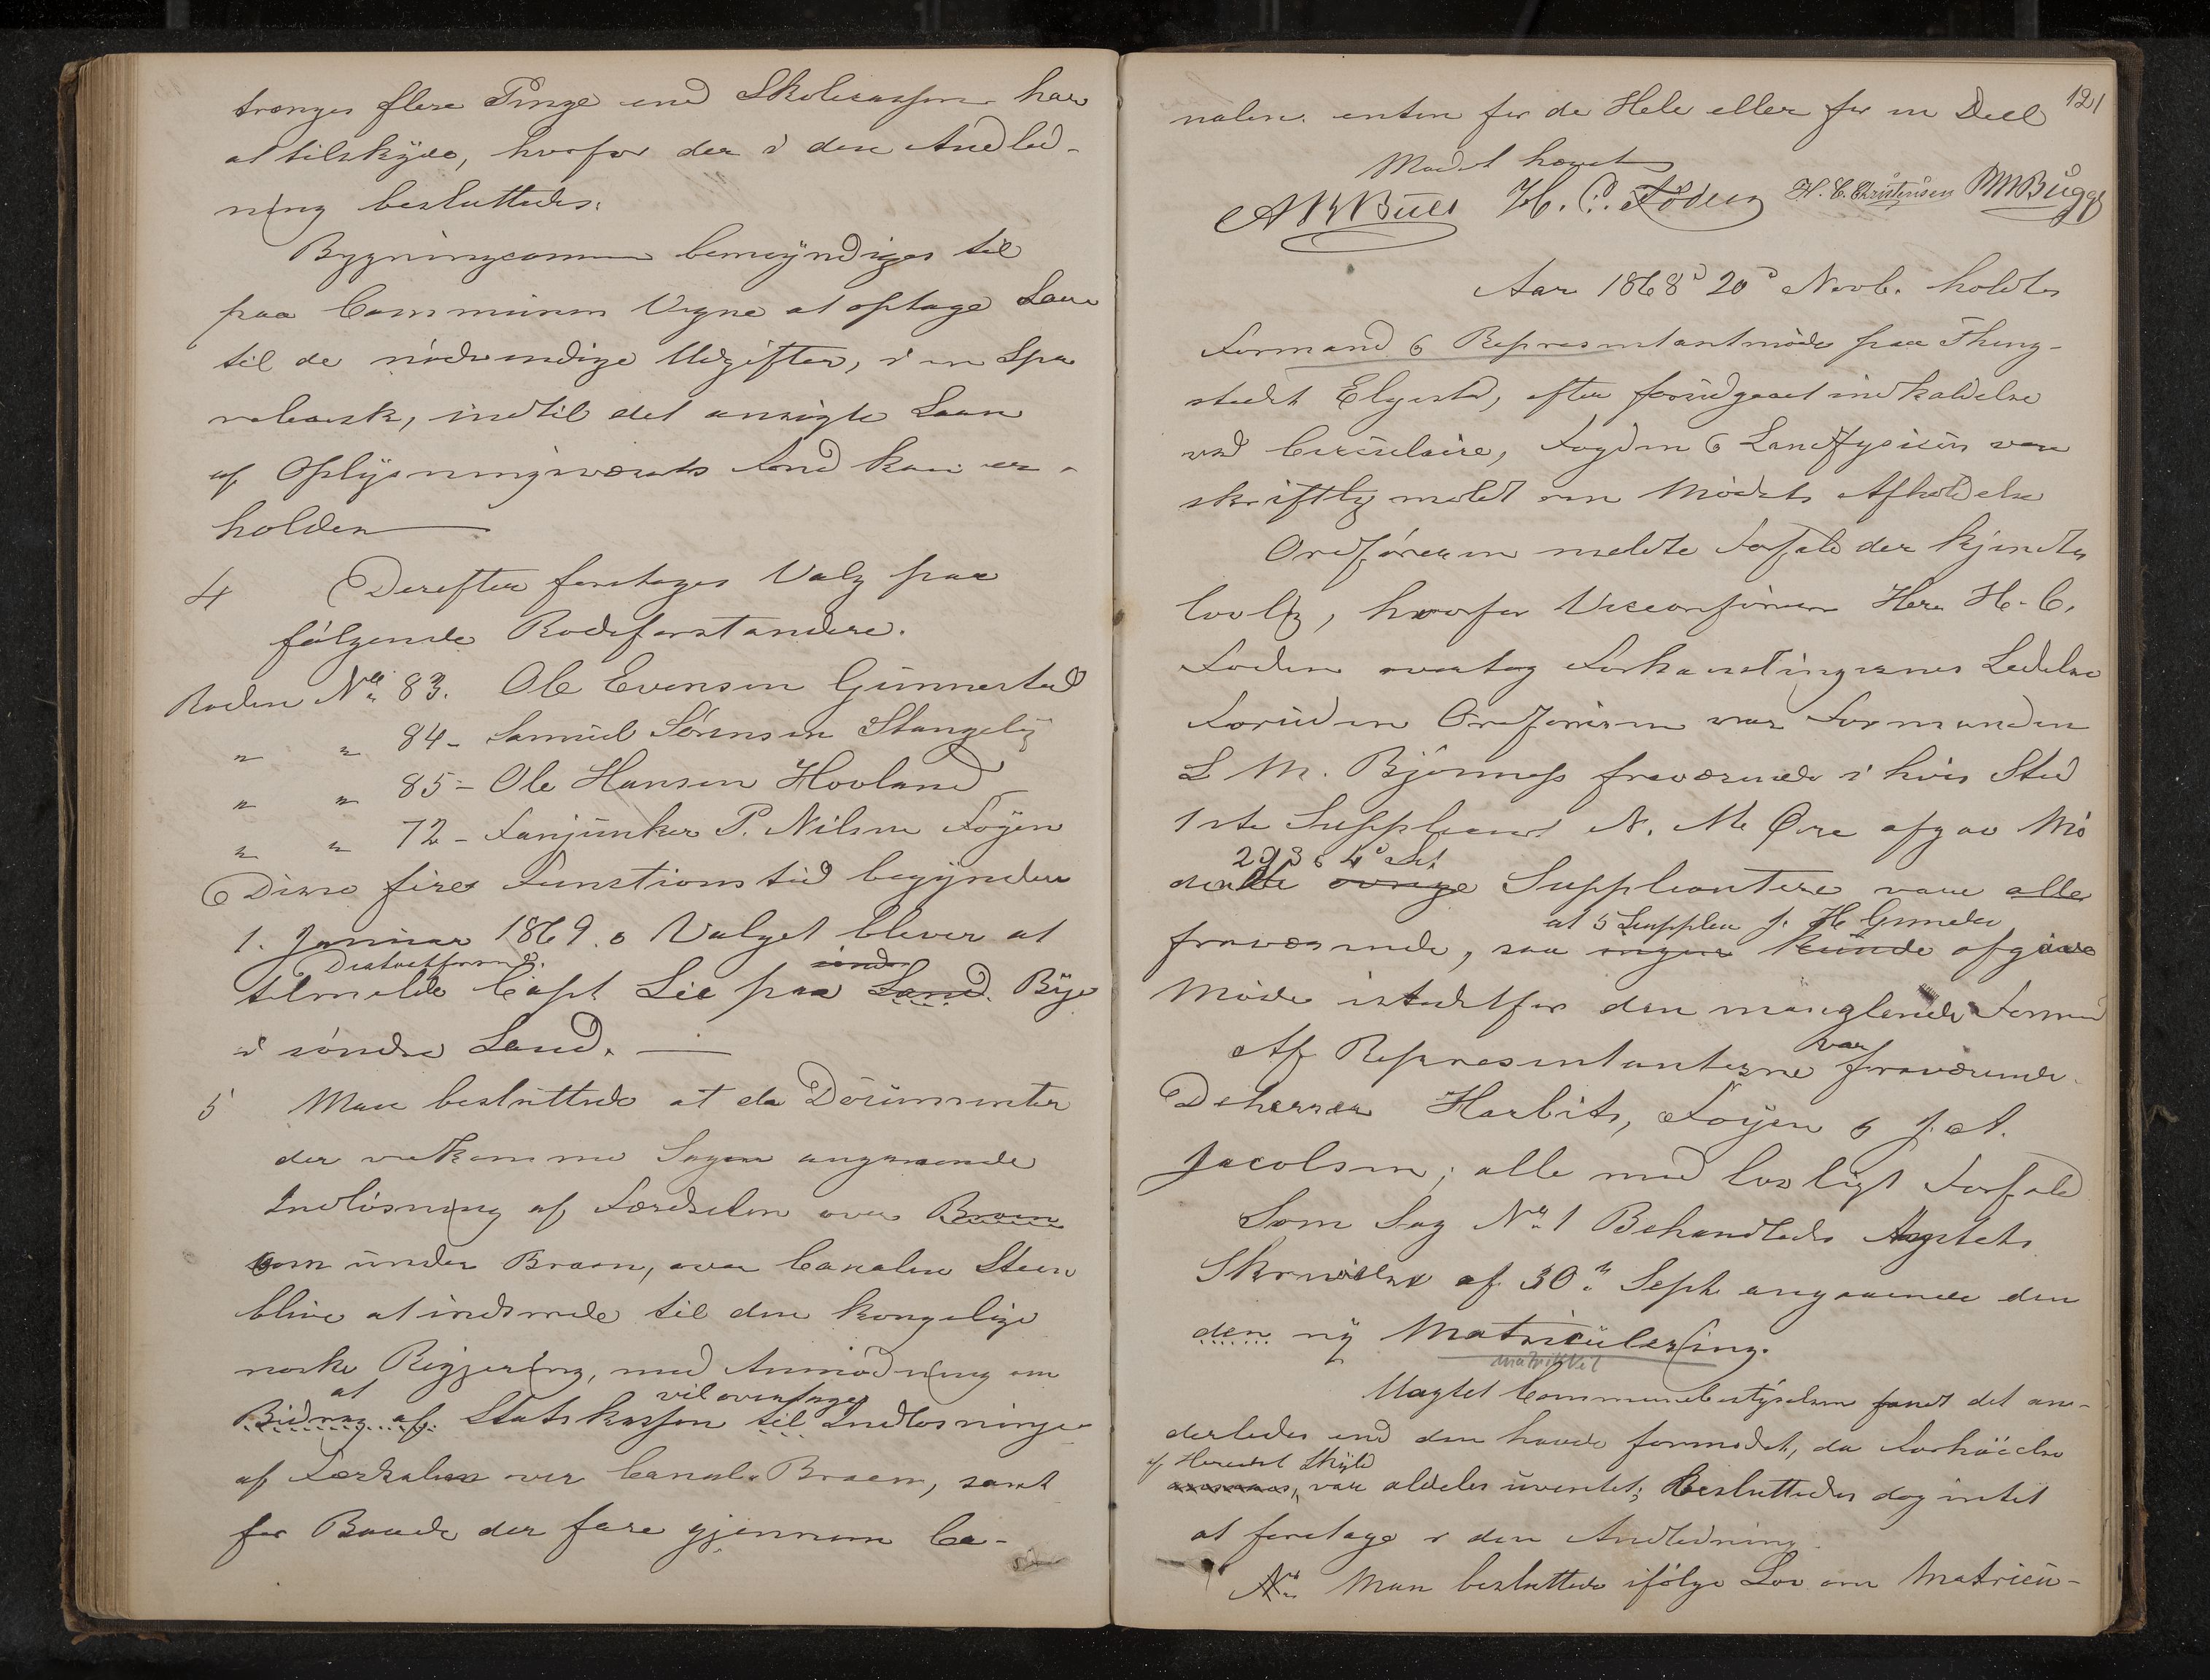 trænges flere Penge end Skolecassen har
at tilskyde, hvorfor der i den Anled-
ning besluttedes:
Bygningscomm bemyndiges til
paa Communens Vegne at optage Laan
til de nødvendige Udgifter, i en Spa
rebank, indtil det ansøgte Laan
af Oplysningsvæsnets Fond kan er-
holdes
4 Derefter foretages Valg paa
følgende Rodeforstandere.
Roden No 83. Ole Evensen Gunnerstad
" " 84- Samuel Sørensen Stangeby
" " 85- Ole Hansen Hovland
" " 72- Fanjunker P. Nilsen Føyen
Disse fires Functionstid begynder
1. Januar 1869. o Valget bliver at
Distriktsform
tilmelde Capt Lie paa Land. Bye
i søndre Land.
5 Man besluttede at de Documenter
der vedkomme Sagen angaaende
Indløsning af Færdselen over Broen
som under Broen, over Canalen Steen
blive at indsende til den kongelige
norske Regjering, med Anmodning om
at vil overtage
Bidrag af Statskassen til Indløsninge
af Færdselen over Canal Broen, samt
for Baade der fare gjennem Ca-
121
nalen. enten for de Hele eller for en Deel
Mødet hævet
H. C. Foden H. C. Christensen Bugge
Aar 1868 d 20 d Novb. holdtes
Formand & Representantmøde paa Thing-
stedet Elgestad, efter forudgaaet indkaldelse
ved Circulaire, Fogden & Landfysicus vare
skriftlig meldt om Mødets Afholdelse
Ordføreren meldte Forfald der kjendtes
lovlig, hvorfor Viceordføreren Herr H. C.
Foden overtog Forhandlingernes Ledelse
Foruden Ordføreren var Formanden
L M. Bjønness fraværende i hvis Sted
1ste Suppleant N. M. Øre afgav Mø
2d 3 & 4d
de øvrige Suppleantere vare alle
at 5 Supplea J. H. Gunde
fraværende, saa ingen kunde afgive
Møde istedetfor den manglende Formd
var
Af Representanterne fraværende
Deherrer Harbitz, Foyen & J. A.
Jacobsen; alle med lovligt Forfald
Som Sag No 1 Behandledes Amtets
Skrivelse af 30te Sept angaaende den
den ny Matriculering.
matrikkel
Uagtet Communebestyrelsen fandt det an-
derledes end den havde formodet, da Forhøielse
af Herredet Skyld
var aldeles uventet; Besluttedes dog intet
at foretage i den Anledning.
No Man besluttede ifølge Lov om Matricu-